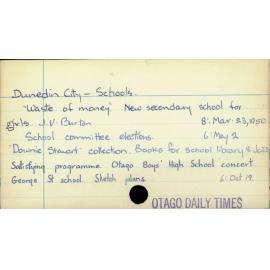 Dunedin City - Schools.
"Waste of money" New secondary school for
girls. J.V. Burton 8: Mar. 23, 1950
School committee elections. 6: May 2
"Downie Stewart" collection. Books for school library 8: 
Satisfying programme. Otago Boys' High School concert.
George St school. Sketch plans. 6: Oct 19.
OTAGO DAILY TIMES